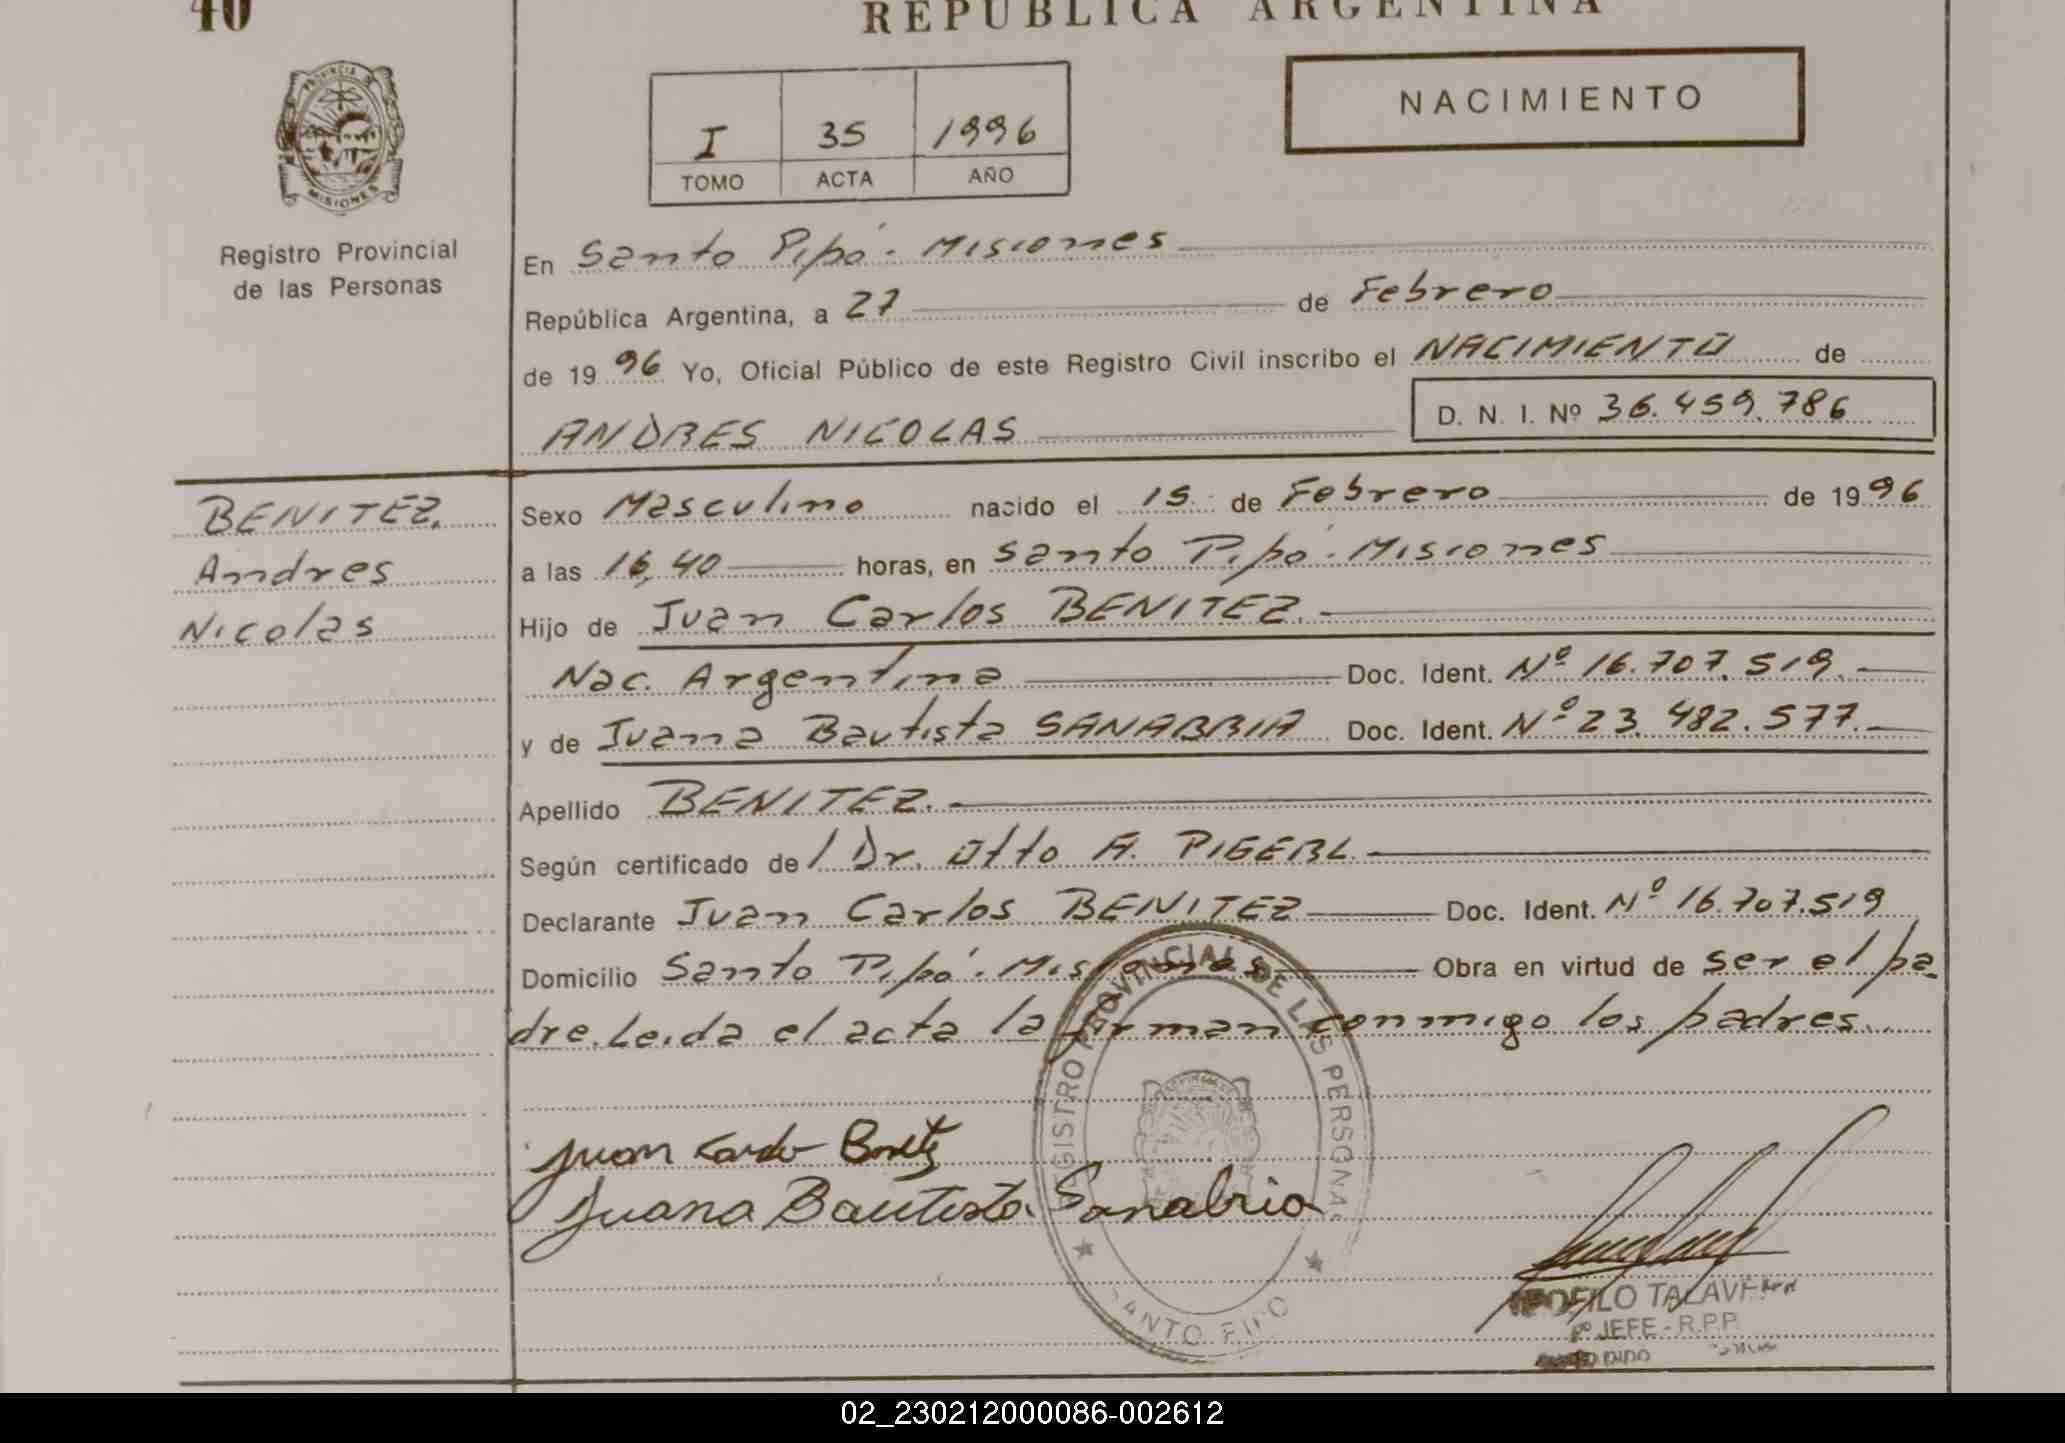 40
REPUBLICA ARGENTINA
PROVINCIA DE
MISIONES
Registro Provincial
de las Personas
I 35 1996
TOMO ACTA AÑO
NACIMIENTO
En Santo Pipó - Misiones
República Argentina, a 27 de Febrero
de 1996 Yo, Oficial Público de este Registro Civil inscribo el NACIMIENTO de
ANDRES NICOLAS
D. N. I. Nº 36.459.786
BENITEZ.
Andres
Nicolas
Sexo Masculino nacido el 15 de Febrero de 1996
a las 16,40 horas, en Santo Pipó - Misiones
Hijo de Juan Carlos BENITEZ.
Nac. Argentina Doc. Ident. Nº 16.707.519.
y de Juana Bautista SANABRIA Doc. Ident. Nº 23.482.577.
Apellido BENITEZ.
Según certificado de / Dr. Otto A. PIGERL.
Declarante Juan Carlos BENITEZ Doc. Ident. Nº 16.707.519
Domicilio Santo Pipó - Misiones Obra en virtud de ser el pa
dre. Leida el acta la firman conmigo los padres.
REGISTRO PROVINCIAL DE LAS PERSONAS
SANTO PIPO
Juan Carlos Benitez
Juana Bautista Sanabria
TEOFILO TALAVERA
JEFE - R.P.P.
PIPO
02_230212000086-002612